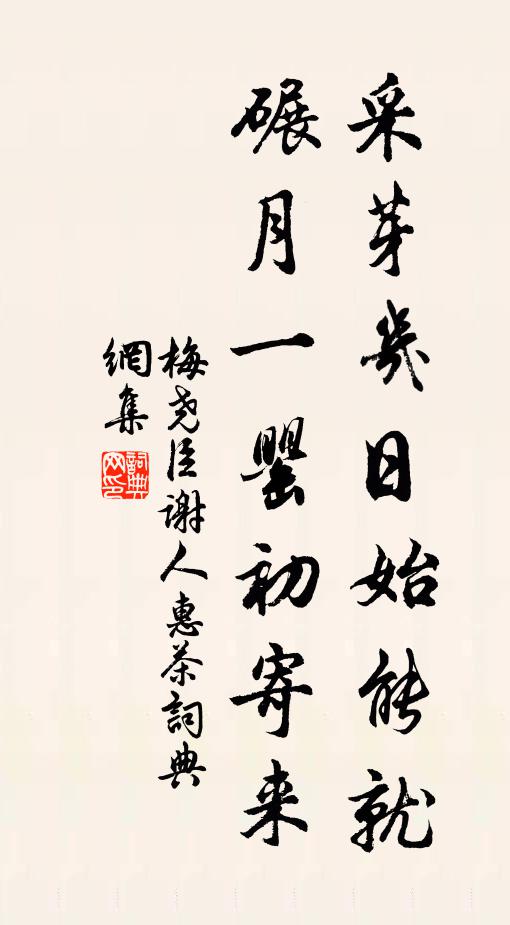 采芽幾日始能就
碾月一罌初寄来
梅尧臣谢人惠茶詞典
網集
詞典网印